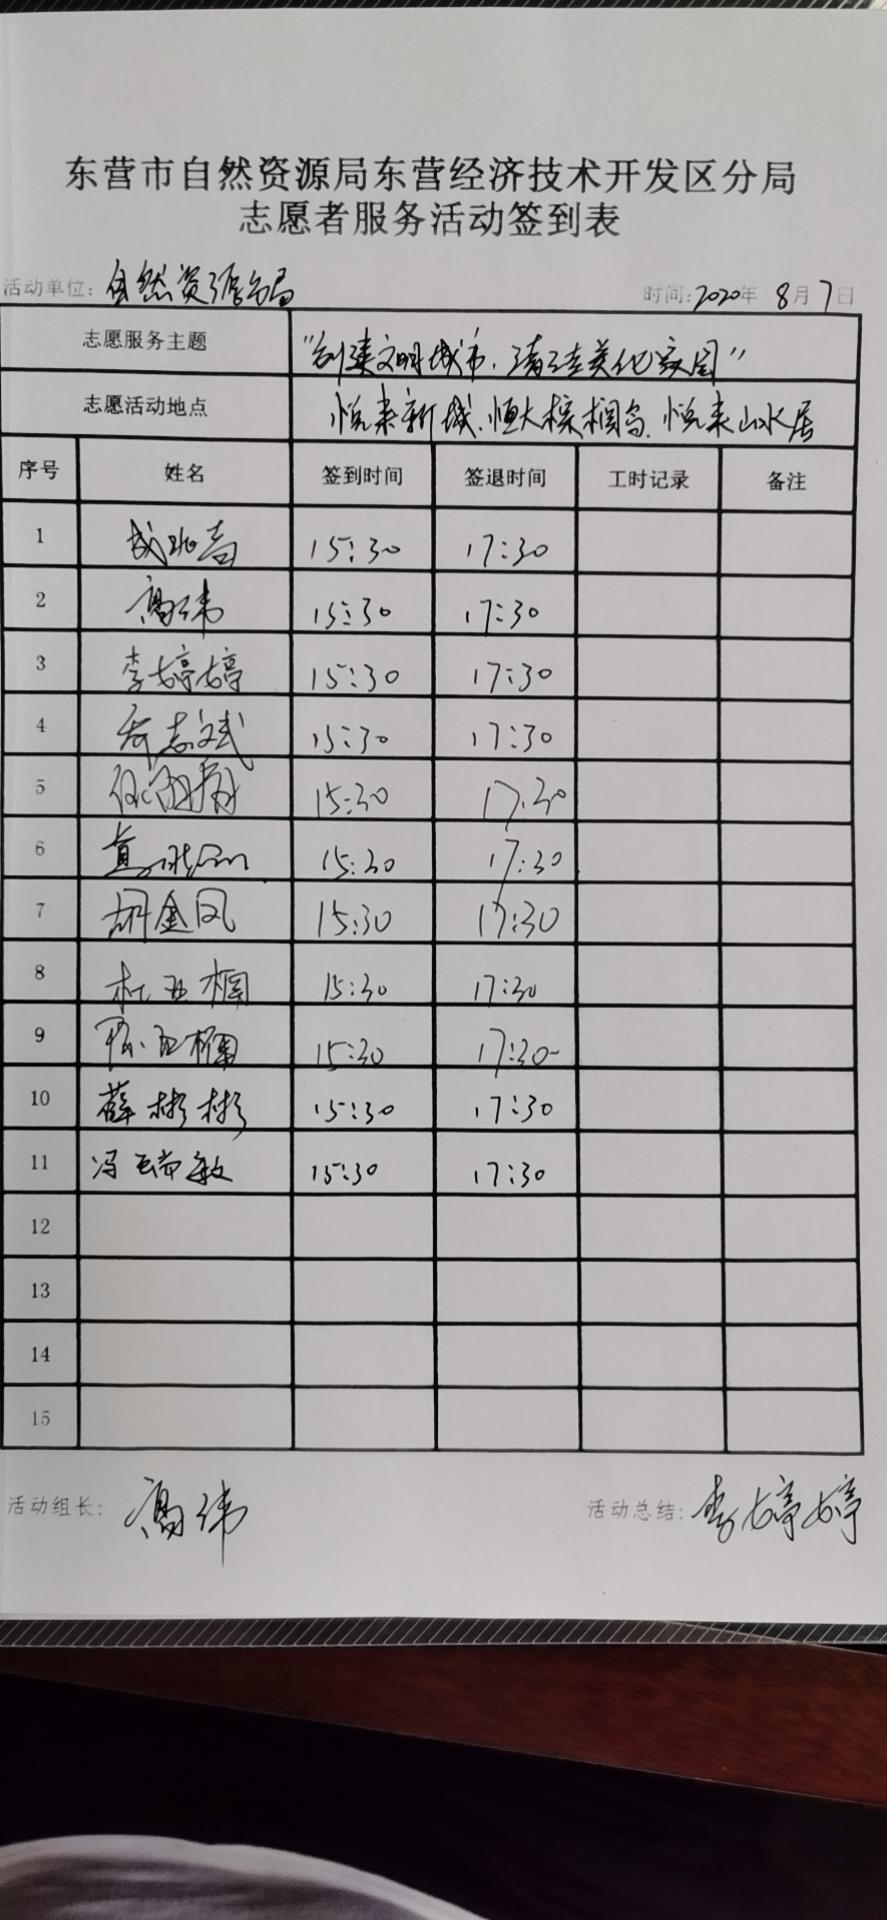 东营市自然资源局东营经济技术开发区分局
志愿者服务活动签到表
活动单位：自然资源分局 时间：2020年 8月7日
志愿服务主题 "创建文明城市，清洁美化家园"
志愿活动地点 悦来新城、恒大棕榈岛、悦来山水居
序号 姓名 签到时间 签退时间 工时记录 备注
1 15:30 17:30
2 高伟 15:30 17:30
3 李婷婷 15:30 17:30
4 志斌 15:30 17:30
5 15:30 17:30
6 15:30 17:30
7 胡金凤 15:30 17:30
8 杜亚楠 15:30 17:30
9 亚楠 15:30 17:30
10 薛彬彬 15:30 17:30
11 冯瑞敏 15:30 17:30
12
13
14
15
活动组长：高伟 活动总结：李婷婷